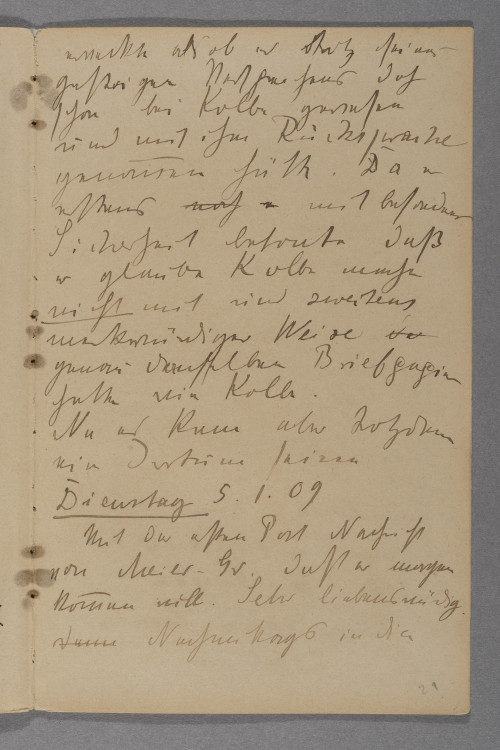 als ob er trotz seines
gestrigen doch
schon bei Kolbe gewesen
und mit ihm Rücksprache
genommen hätte. Da er
erstens noch mit besonderer
Sicherheit betonte daß
er glaube Kolbe mache
nicht mit und zweitens
merkwürdiger Weise
genau denselben Briefbogen
hatte wie Kolbe.
Na es kann aber trotzdem
ein Irrtum seien
Dienstag 5.1.09
Mit der ersten Post Nachricht
von Meier-Gr. daß er morgen
kommen will. Sehr liebenswürdig.
Nachmittags in die
21